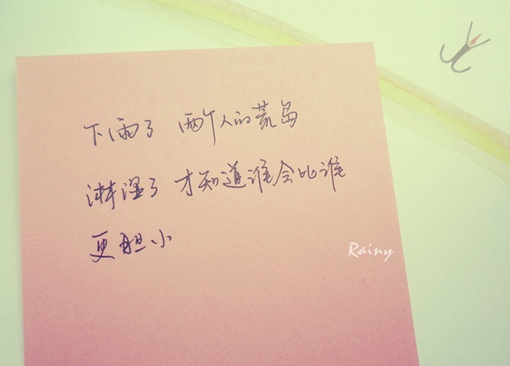 下雨了 两个人的荒岛
淋湿了 才知道谁会比谁
更胆小
Rainy